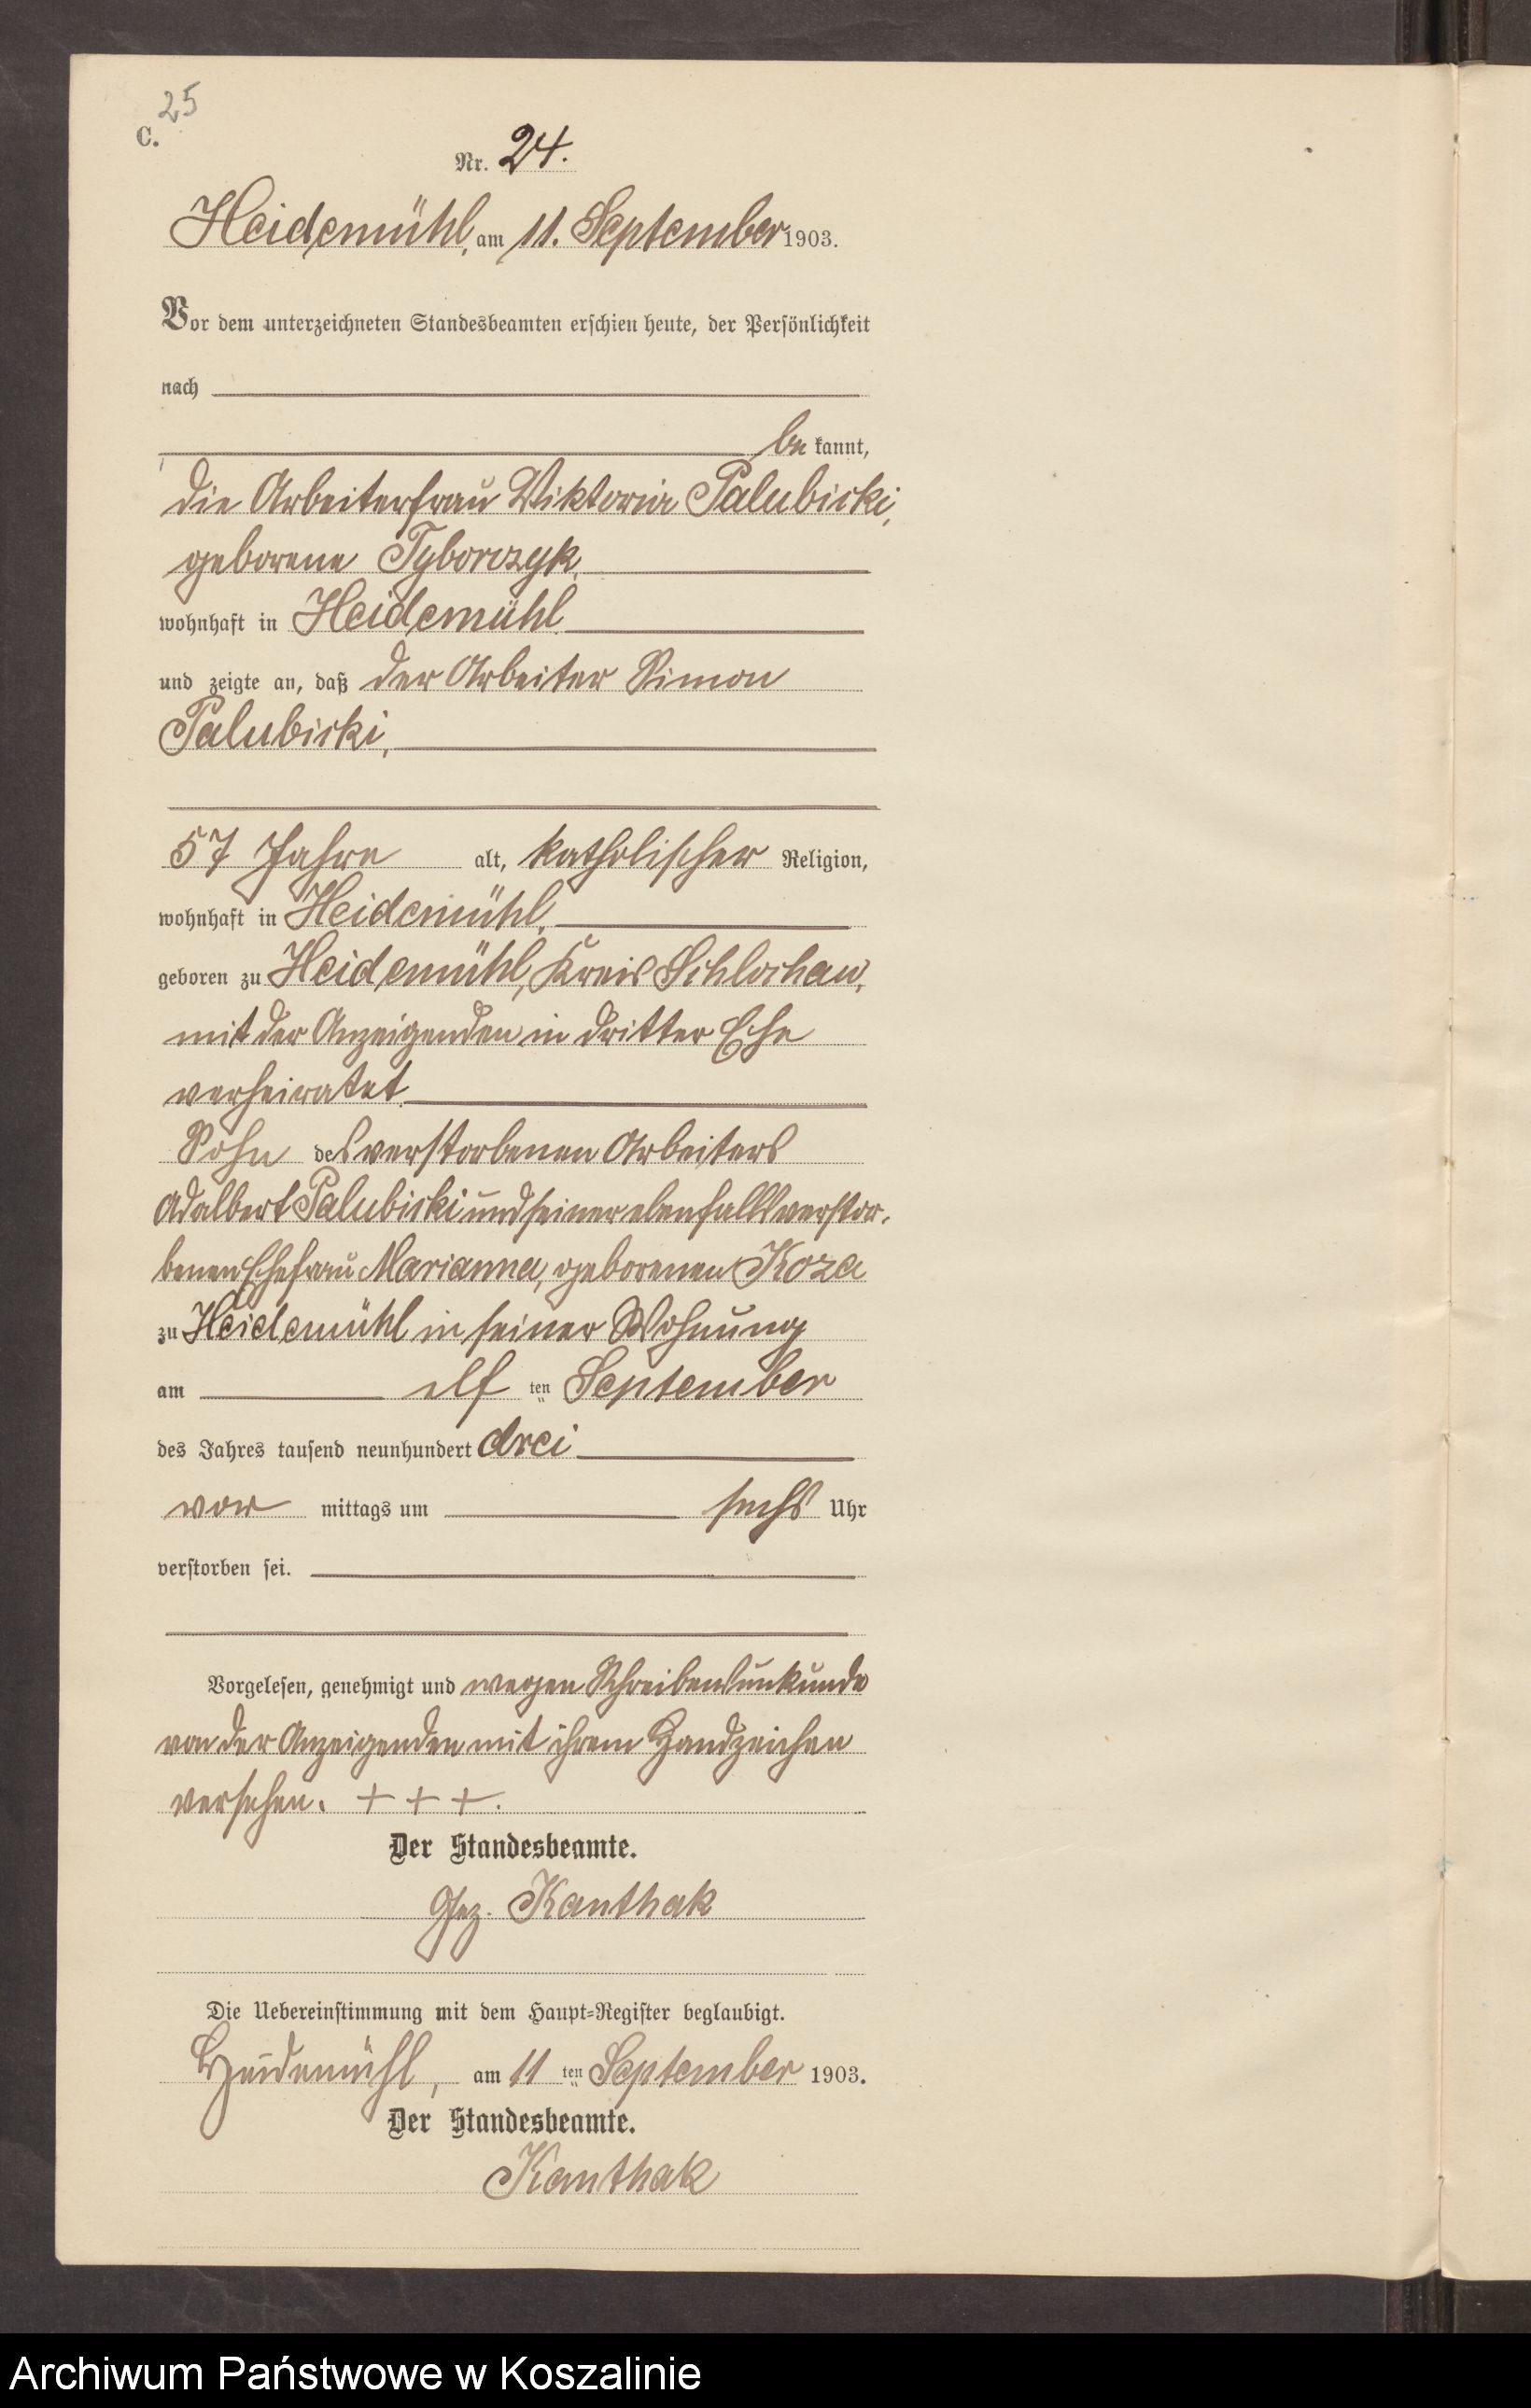 25
C.
Nr. 24.
Heidemühl, am 11. September 1903.
Vor dem unterzeichneten Standesbeamten erschien heute, der Persönlichkeit
nach
be kannt,
die Arbeiterfrau Viktoria Palubicki,
geborene Tyborczyk,
wohnhaft in Heidemühl
und zeigte an, daß der Arbeiter Simon
Palubicki,
57 Jahre alt, katholischer Religion,
wohnhaft in Heidemühl,
geboren zu Heidemühl, Kreis Schlochau,
mit der Anzeigenden in dritter Ehe
verheiratet
Sohn des verstorbenen Arbeiters
Adalbert Palubicki und seiner ebenfalls verstor-
benen Ehefrau Marianna, geborenen Koza
zu Heidemühl in seiner Wohnung
am elf ten September
des Jahres tausend neunhundert drei
vor mittags um sechs Uhr
verstorben sei.
Vorgelesen, genehmigt und wegen Schreibensunkunde
von der Anzeigenden mit ihrem Handzeichen
versehen. + + +.
Der Standesbeamte.
Gez. Kanthak
Die Uebereinstimmung mit dem Haupt=Register beglaubigt.
Heidemühl, am 11 ten September 1903.
Der Standesbeamte.
Kanthak
Archiwum Państwowe w Koszalinie